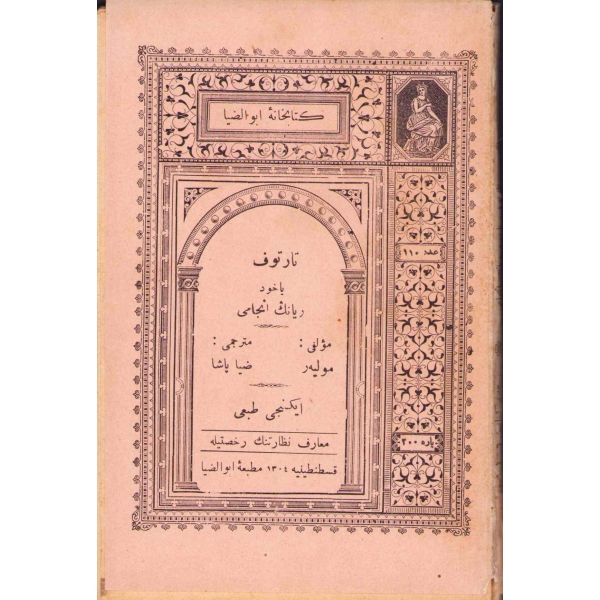 كتابخانهٔ ابوالضيا
عدد: ١١٠
تارتوف
ياخود
ريانڭ انجامى
مؤلفى: مترجمى:
موليهر ضيا پاشا
ايكنجى طبعى
معارف نظارتنك رخصتيله
قسطنطينيه ١٣٠٤ مطبعهٔ ابوالضيا
پاره ٢٠٠